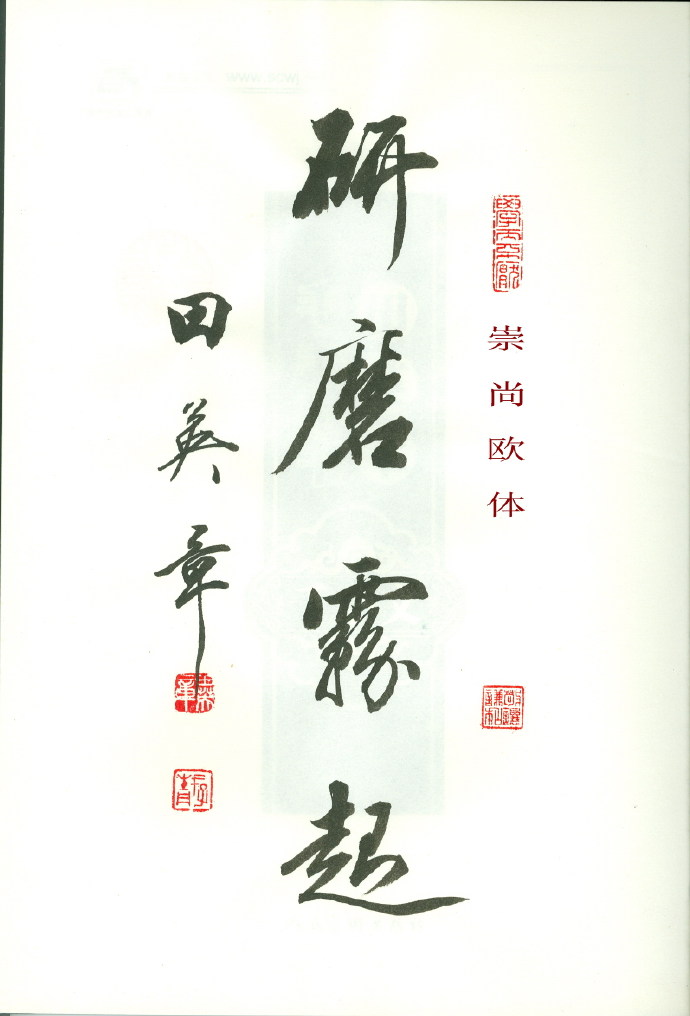 崇尚欧体
研磨霧起
田英章